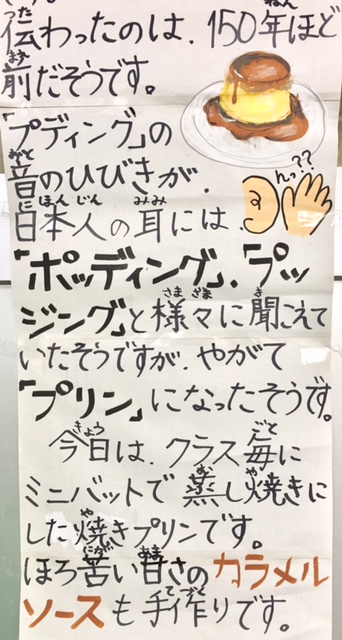 伝わったのは、150年ほど
前だそうです。
「プディング」の
音のひびきが、
んっ??
日本人の耳には、
「ポッディング」、「プッ
ジング」と様々に聞こえて
いたそうですが、やがて
「プリン」になったそうです。
今日は、クラス毎に
ミニバットで蒸し焼きに
した焼きプリンです。
ほろ苦い甘さのカラメル
ソースも手作りです。